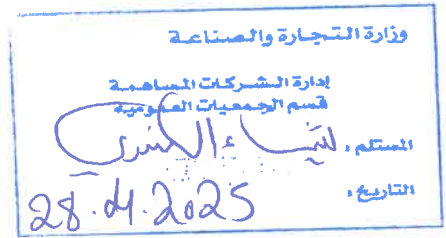 وزارة التجارة والصناعة
إدارة الشركات المساهمة
قسم الجمعيات العمومية
المستلم: لمياء الكندري
التاريخ: 28.04.2025